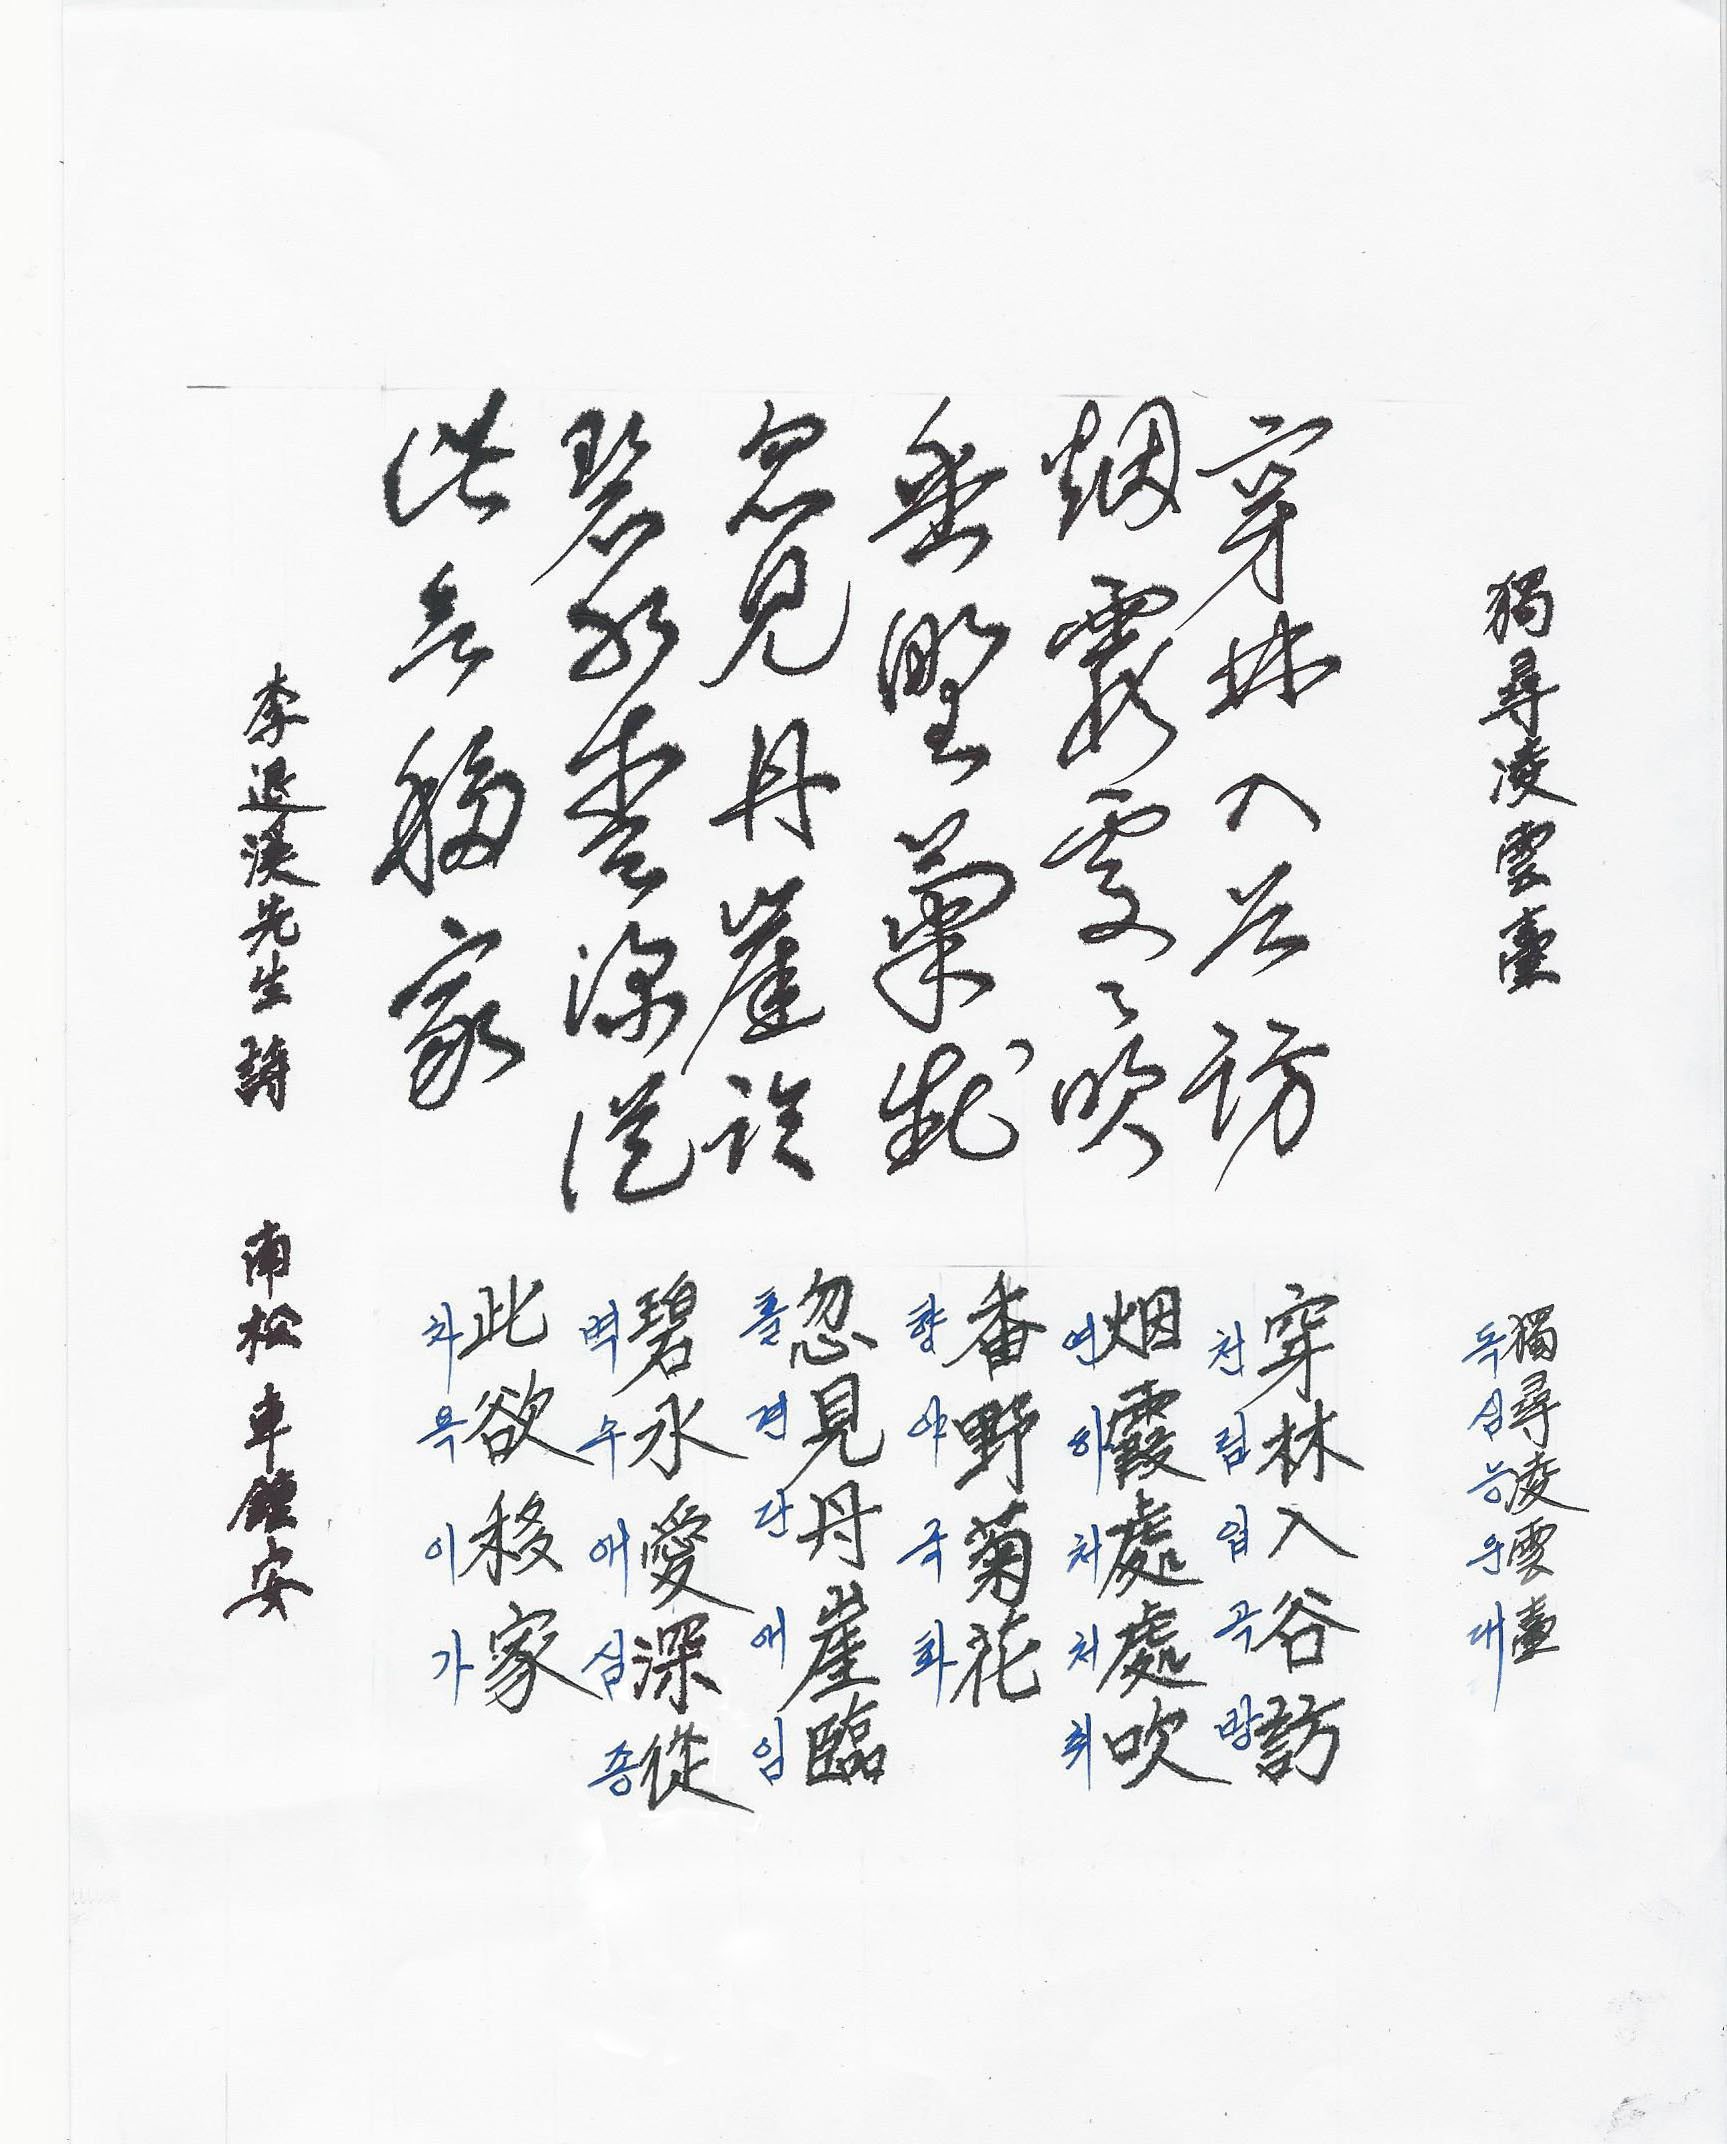 獨尋凌雲臺
穿林入谷訪
烟霞處々吹
香野菊花
忽見丹崖臨
碧水愛深從
此欲移家
李退溪先生詩 南松 車鍾安
獨尋凌雲臺
독심능운대
穿林入谷訪
천림입곡방
烟霞處處吹
연하처처취
香野菊花
향야국화
忽見丹崖臨
홀견단애임
碧水愛深從
벽수애심종
此欲移家
차욕이가